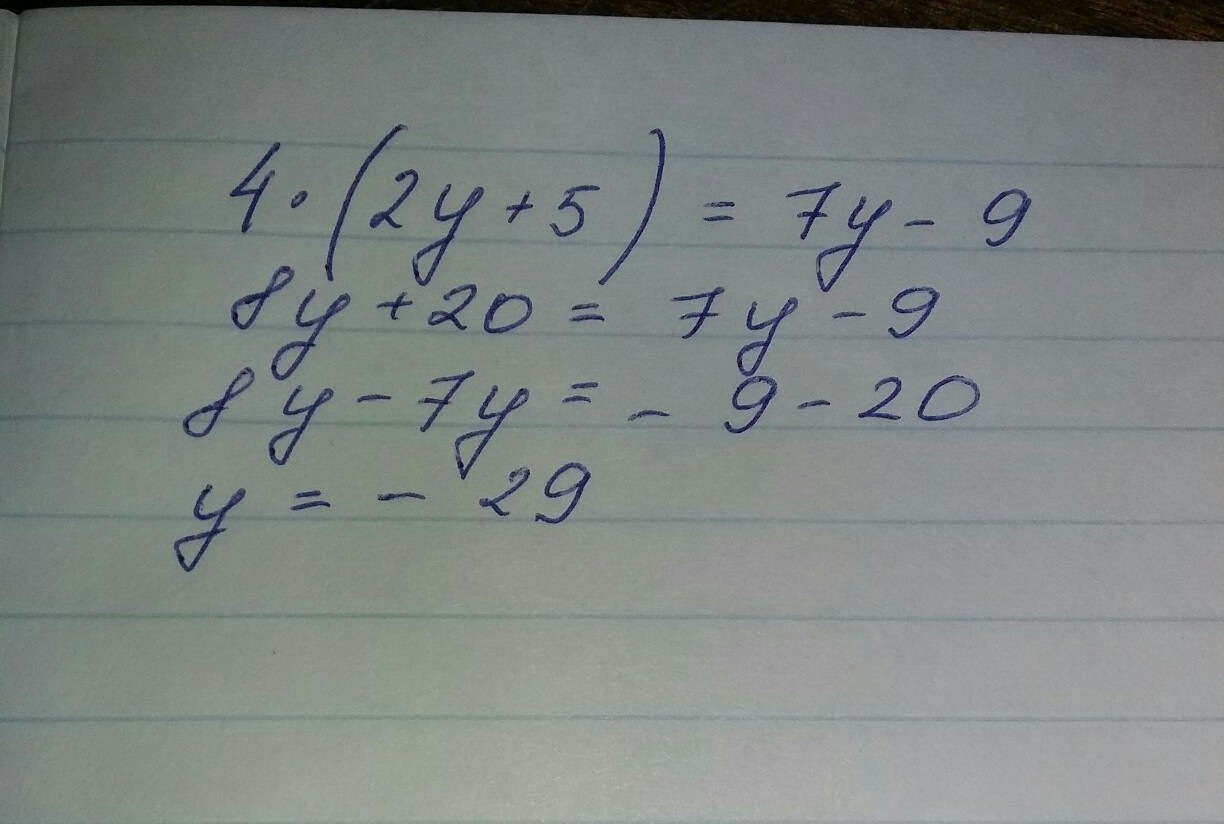 4·(2y+5) = 7y - 9
8y + 20 = 7y - 9
8y - 7y = - 9 - 20
y = - 29